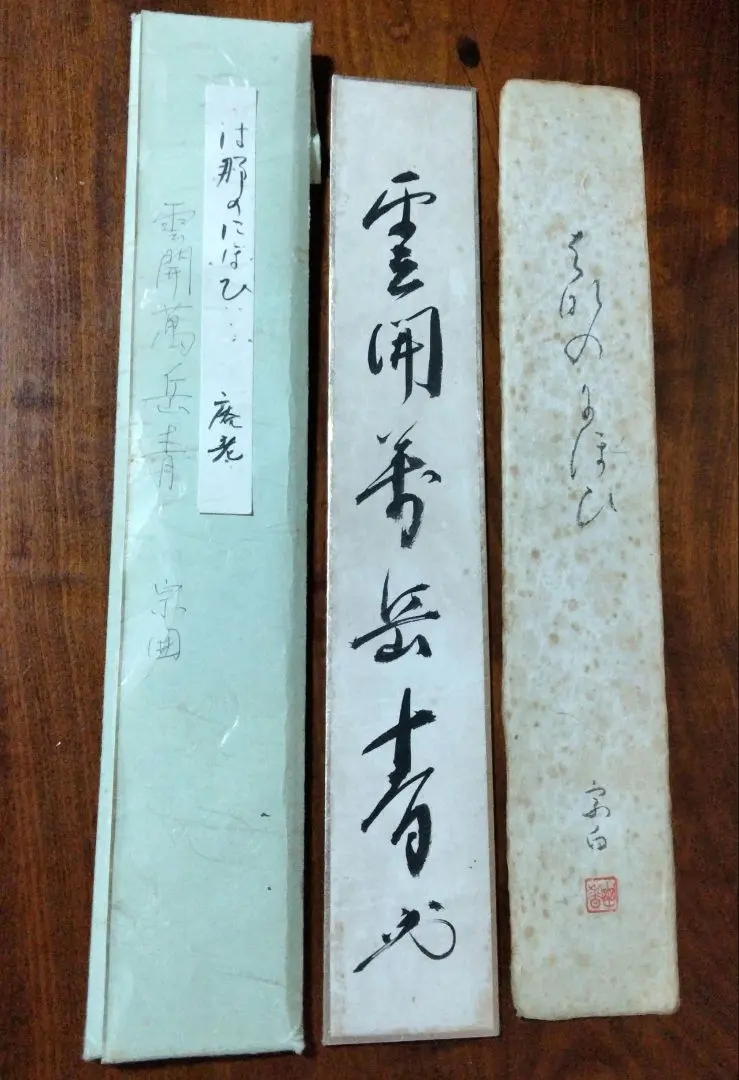 は那のにほひ
庵老
雲開萬岳青
宗囲
雲開萬岳青
者那のにほひ
宗白